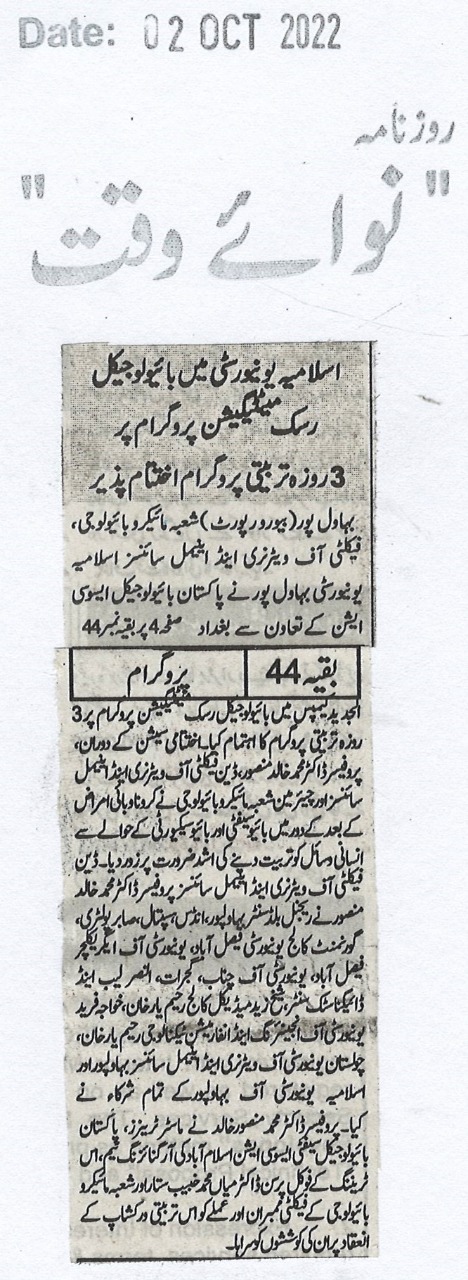 Date: 02 OCT 2022
روزنامہ
"نوائے وقت"
اسلامیہ یونیورسٹی میں بائیولوجیکل
رسک میٹیگیشن پروگرام پر
3 روزہ تربیتی پروگرام اختتام پذیر
بہاول پور (بیورورپورٹ) شعبہ مائیکروبائیولوجی،
فیکلٹی آف ویٹرنری اینڈ اینیمل سائنسز اسلامیہ
یونیورسٹی بہاول پور نے پاکستان بائیولوجیکل ایسوسی
ایشن کے تعاون سے بغداد صفحہ 4 پر بقیہ نمبر 44
بقیہ 44 پروگرام
الجدید کیمپس میں بائیولوجیکل رسک میٹیگیشن پروگرام پر 3
روزہ تربیتی پروگرام کا اہتمام کیا۔ اختتامی سیشن کے دوران،
پروفیسر ڈاکٹر محمد خالد منصور، ڈین فیکلٹی آف ویٹرنری اینڈ اینیمل
سائنسز اور چیئرمین شعبہ مائیکروبائیولوجی نے کرونا وبائی امراض
کے بعد کے دور میں بائیوسیفٹی اور بائیوسیکیورٹی کے حوالے سے
انسانی وسائل کو تربیت دینے کی اشد ضرورت پر زور دیا۔ ڈین
فیکلٹی آف ویٹرنری اینڈ اینیمل سائنسز پروفیسر ڈاکٹر محمد خالد
منصور نے ریجنل بلڈ سنٹر بہاولپور، انڈس ہسپتال، صابر پولٹری،
گورنمنٹ کالج یونیورسٹی فیصل آباد، یونیورسٹی آف ایگریکلچر
فیصل آباد، یونیورسٹی آف چناب، گجرات، النصر لیب اینڈ
ڈائیگناسٹک سنٹر، شیخ زید میڈیکل کالج رحیم یار خان، خواجہ فرید
یونیورسٹی آف انجینئرنگ اینڈ انفارمیشن ٹیکنالوجی رحیم یار خان،
چولستان یونیورسٹی آف ویٹرنری اینڈ اینیمل سائنسز بہاولپور اور
اسلامیہ یونیورسٹی آف بہاولپور کے تمام شرکاء نے
کیا۔ پروفیسر ڈاکٹر محمد منصور خالد نے ماسٹر ٹرینرز، پاکستان
بائیولوجیکل سیفٹی ایسوسی ایشن اسلام آباد کی آرگنائزنگ ٹیم، اس
ٹریننگ کے فوکل پرسن ڈاکٹر میاں محمد خبیب ستار اور شعبہ مائیکرو
بائیولوجی کے فیکلٹی ممبران اور عملے کو اس تربیتی ورکشاپ کے
انعقاد پر ان کی کوششوں کو سراہا۔